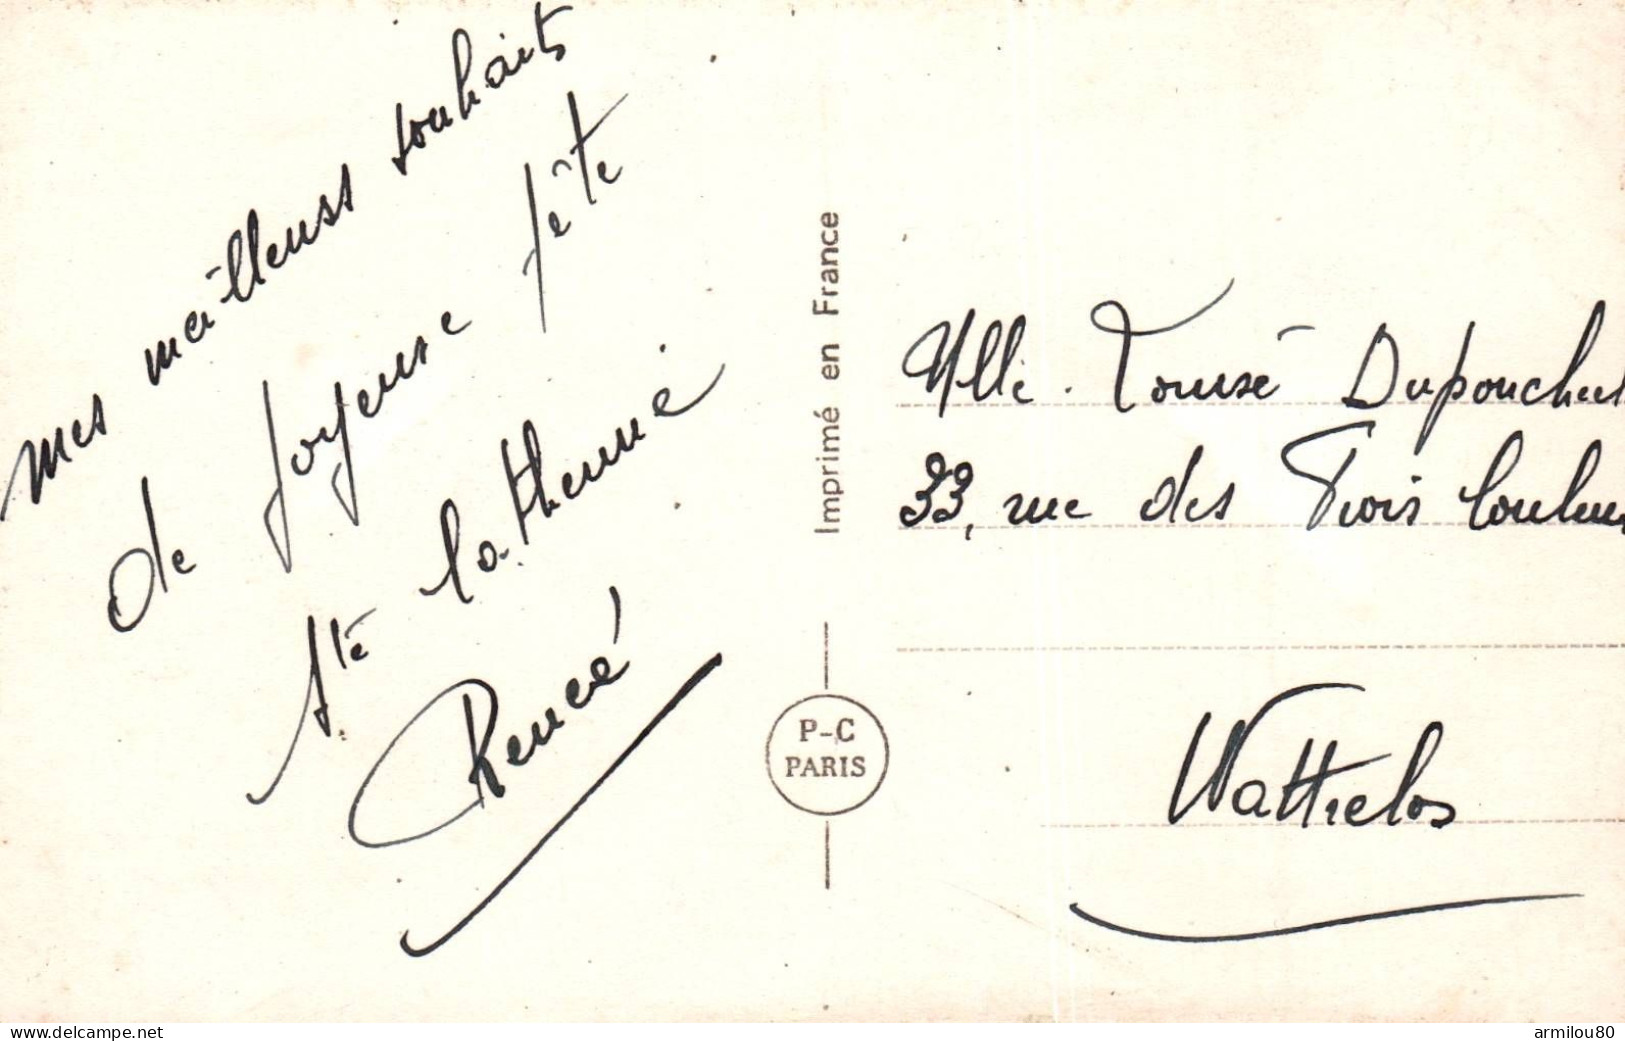 Mes meilleurs souhaits
de joyeuse fête
Ste Catherine
Renée
Imprimé en France
P-C
PARIS
Mlle. Louise Dupouchel
33, rue des Trois Couleurs
Wattrelos
delcampe.net
armilou80